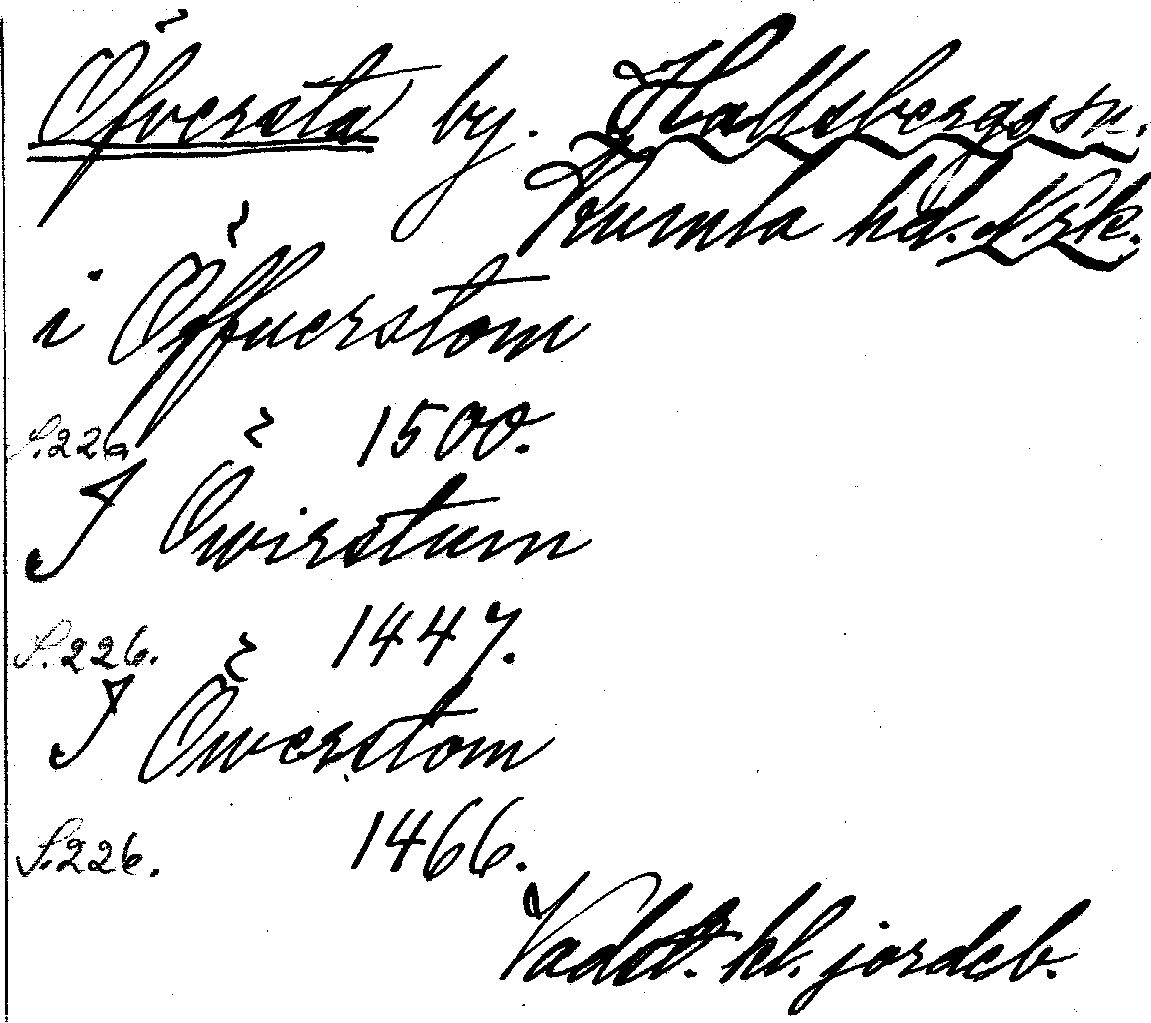 Öfversta by. Hallsbergs sn.
Kumla hd. Nrk.
i Öffuerstom
S.226 1500.
J Öwirstum
S.226. 1447.
J Öwerstom
S.226. 1466.
Vadst. kl. jordeb.